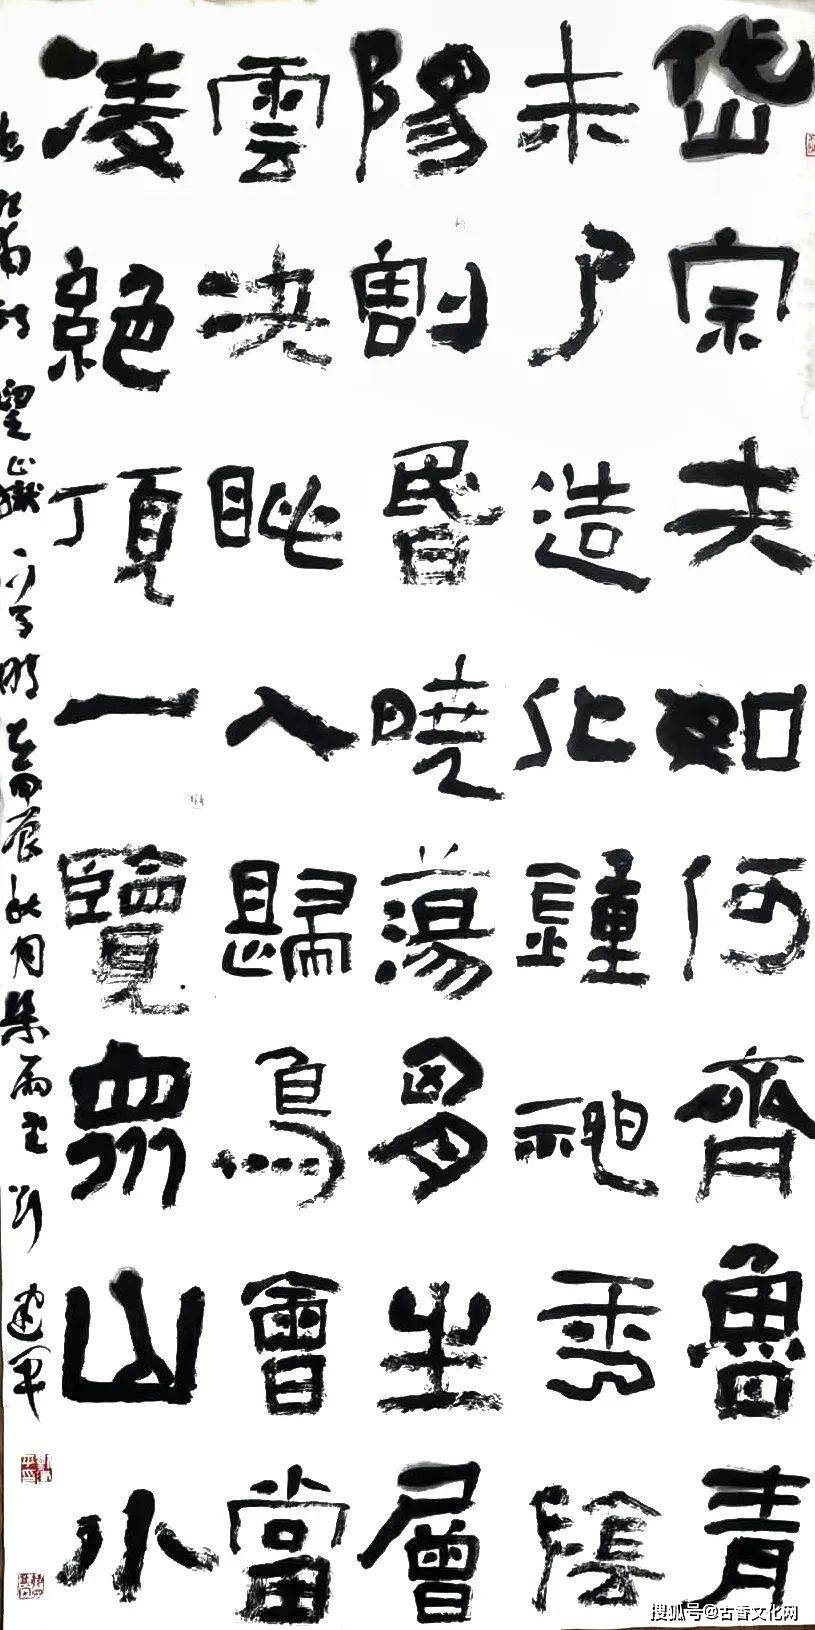 岱宗夫如何齊魯青
未了造化鍾神秀陰
陽割昬曉蕩胷生層
雲決眦入歸鳥會當
凌絕頂一覽眾山小
杜甫詩望嶽一首時甲辰秋月雨堂建軍
搜狐号@古香文化网